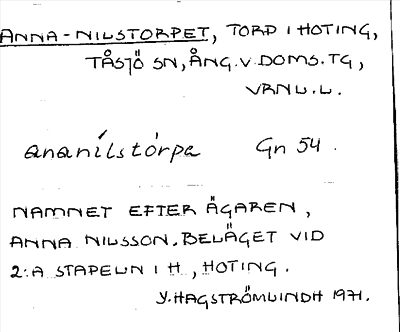 ANNA-NILSTORPET, TORP I HOTING,
TÅSJÖ SN, ÅNG.V.DOMS.TG,
VRNL.L.
ananílstórpa Gn 54.
NAMNET EFTER ÄGAREN,
ANNA NILSSON. BELÄGET VID
2:A STAPELN I H, HOTING.
Y. HAGSTRÖMLINDH 1971.